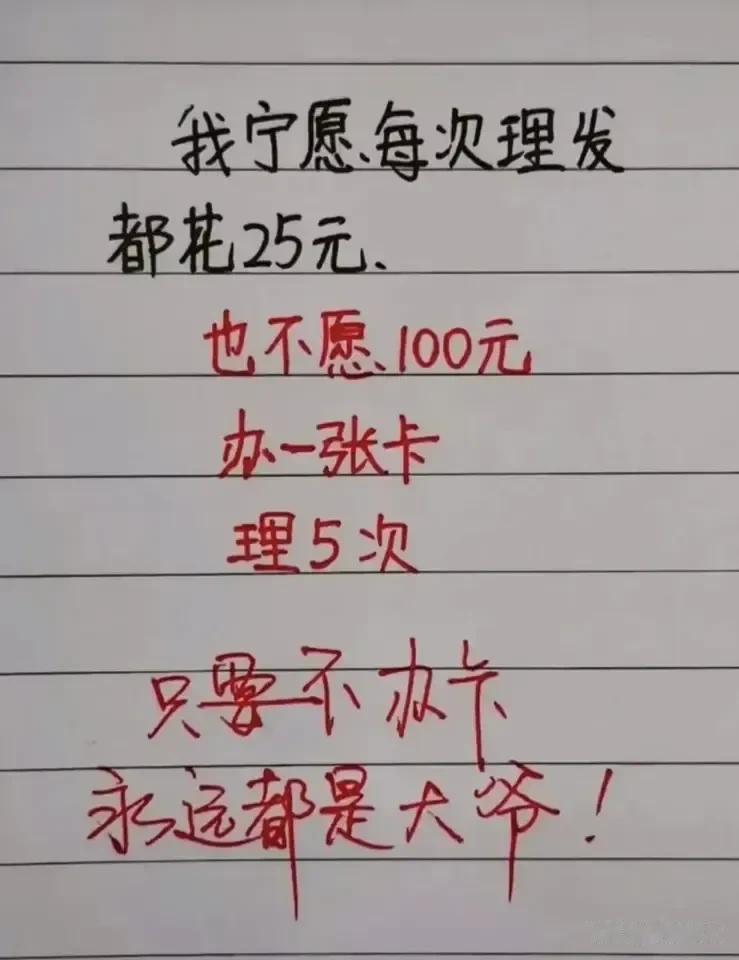 我宁愿每次理发
都花25元、
也不愿100元
办一张卡
理5次
只要不办卡
永远都是大爷！